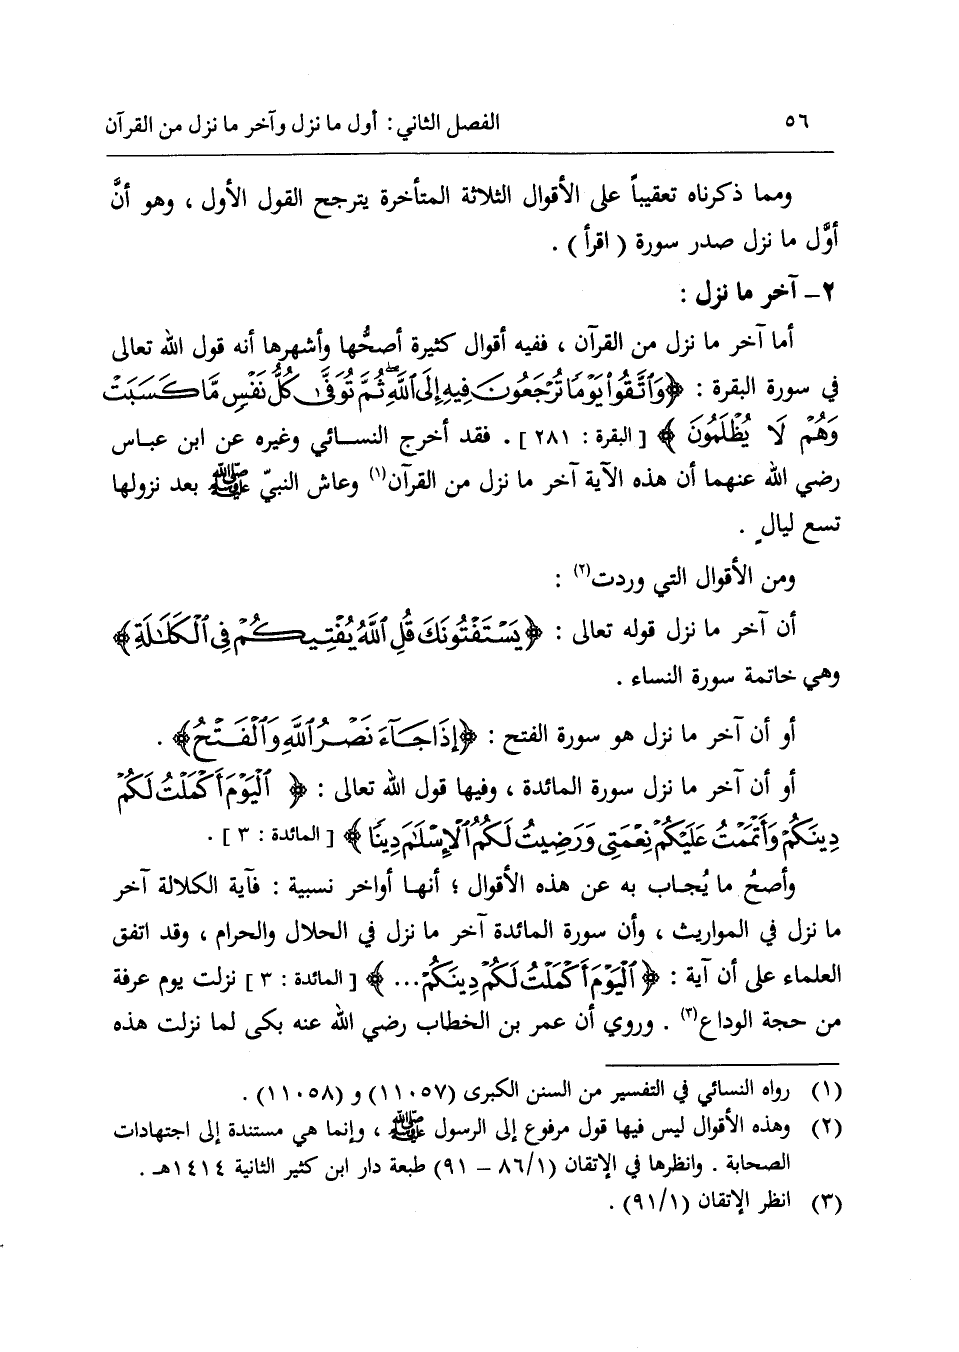 ٥٦ الفصل الثاني: أول ما نزل وآخر ما نزل من القرآن
ومما ذكرناه تعقيباً على الأقوال الثلاثة المتأخرة يترجح القول الأول ، وهو أنَّ
أوَّل ما نزل صدر سورة ( اقرأ ) .
٢ـ آخر ما نزل :
أما آخر ما نزل من القرآن ، ففيه أقوال كثيرة أصحُّها وأشهرها أنه قول الله تعالى
في سورة البقرة : ﴿وَٱتَّقُوا۟ يَوْمًا تُرْجَعُونَ فِيهِ إِلَى ٱللَّهِ ۖ ثُمَّ تُوَفَّىٰ كُلُّ نَفْسٍ مَّا كَسَبَتْ
وَهُمْ لَا يُظْلَمُونَ ﴾ [ البقرة : ٢٨١ ] . فقد أخرج النسائي وغيره عن ابن عباس
رضي الله عنهما أن هذه الآية آخر ما نزل من القرآن(١) وعاش النبيّ ﷺ بعد نزولها
تسع ليالٍ .
ومن الأقوال التي وردت(٢) :
أن آخر ما نزل قوله تعالى : ﴿يَسْتَفْتُونَكَ قُلِ ٱللَّهُ يُفْتِيكُمْ فِى ٱلْكَلَـٰلَةِ﴾
وهي خاتمة سورة النساء .
أو أن آخر ما نزل هو سورة الفتح : ﴿إِذَا جَآءَ نَصْرُ ٱللَّهِ وَٱلْفَتْحُ﴾ .
أو أن آخر ما نزل سورة المائدة ، وفيها قول الله تعالى : ﴿ ٱلْيَوْمَ أَكْمَلْتُ لَكُمْ
دِينَكُمْ وَأَتْمَمْتُ عَلَيْكُمْ نِعْمَتِى وَرَضِيتُ لَكُمُ ٱلْإِسْلَـٰمَ دِينًا ﴾ [ المائدة : ٣ ] .
وأصحُ ما يُجاب به عن هذه الأقوال ؛ أنها أواخر نسبية : فآية الكلالة آخر
ما نزل في المواريث ، وأن سورة المائدة آخر ما نزل في الحلال والحرام ، وقد اتفق
العلماء على أن آية : ﴿ ٱلْيَوْمَ أَكْمَلْتُ لَكُمْ دِينَكُمْ... ﴾ [ المائدة : ٣ ] نزلت يوم عرفة
من حجة الوداع(٣) . وروي أن عمر بن الخطاب رضي الله عنه بكى لما نزلت هذه
(١) رواه النسائي في التفسير من السنن الكبرى (١١٠٥٧) و (١١٠٥٨) .
(٢) وهذه الأقوال ليس فيها قول مرفوع إلى الرسول ﷺ ، وإنما هي مستندة إلى اجتهادات
الصحابة . وانظرها في الإتقان (٨٦/١ – ٩١) طبعة دار ابن كثير الثانية ١٤١٤هـ .
(٣) انظر الإتقان (٩١/١) .